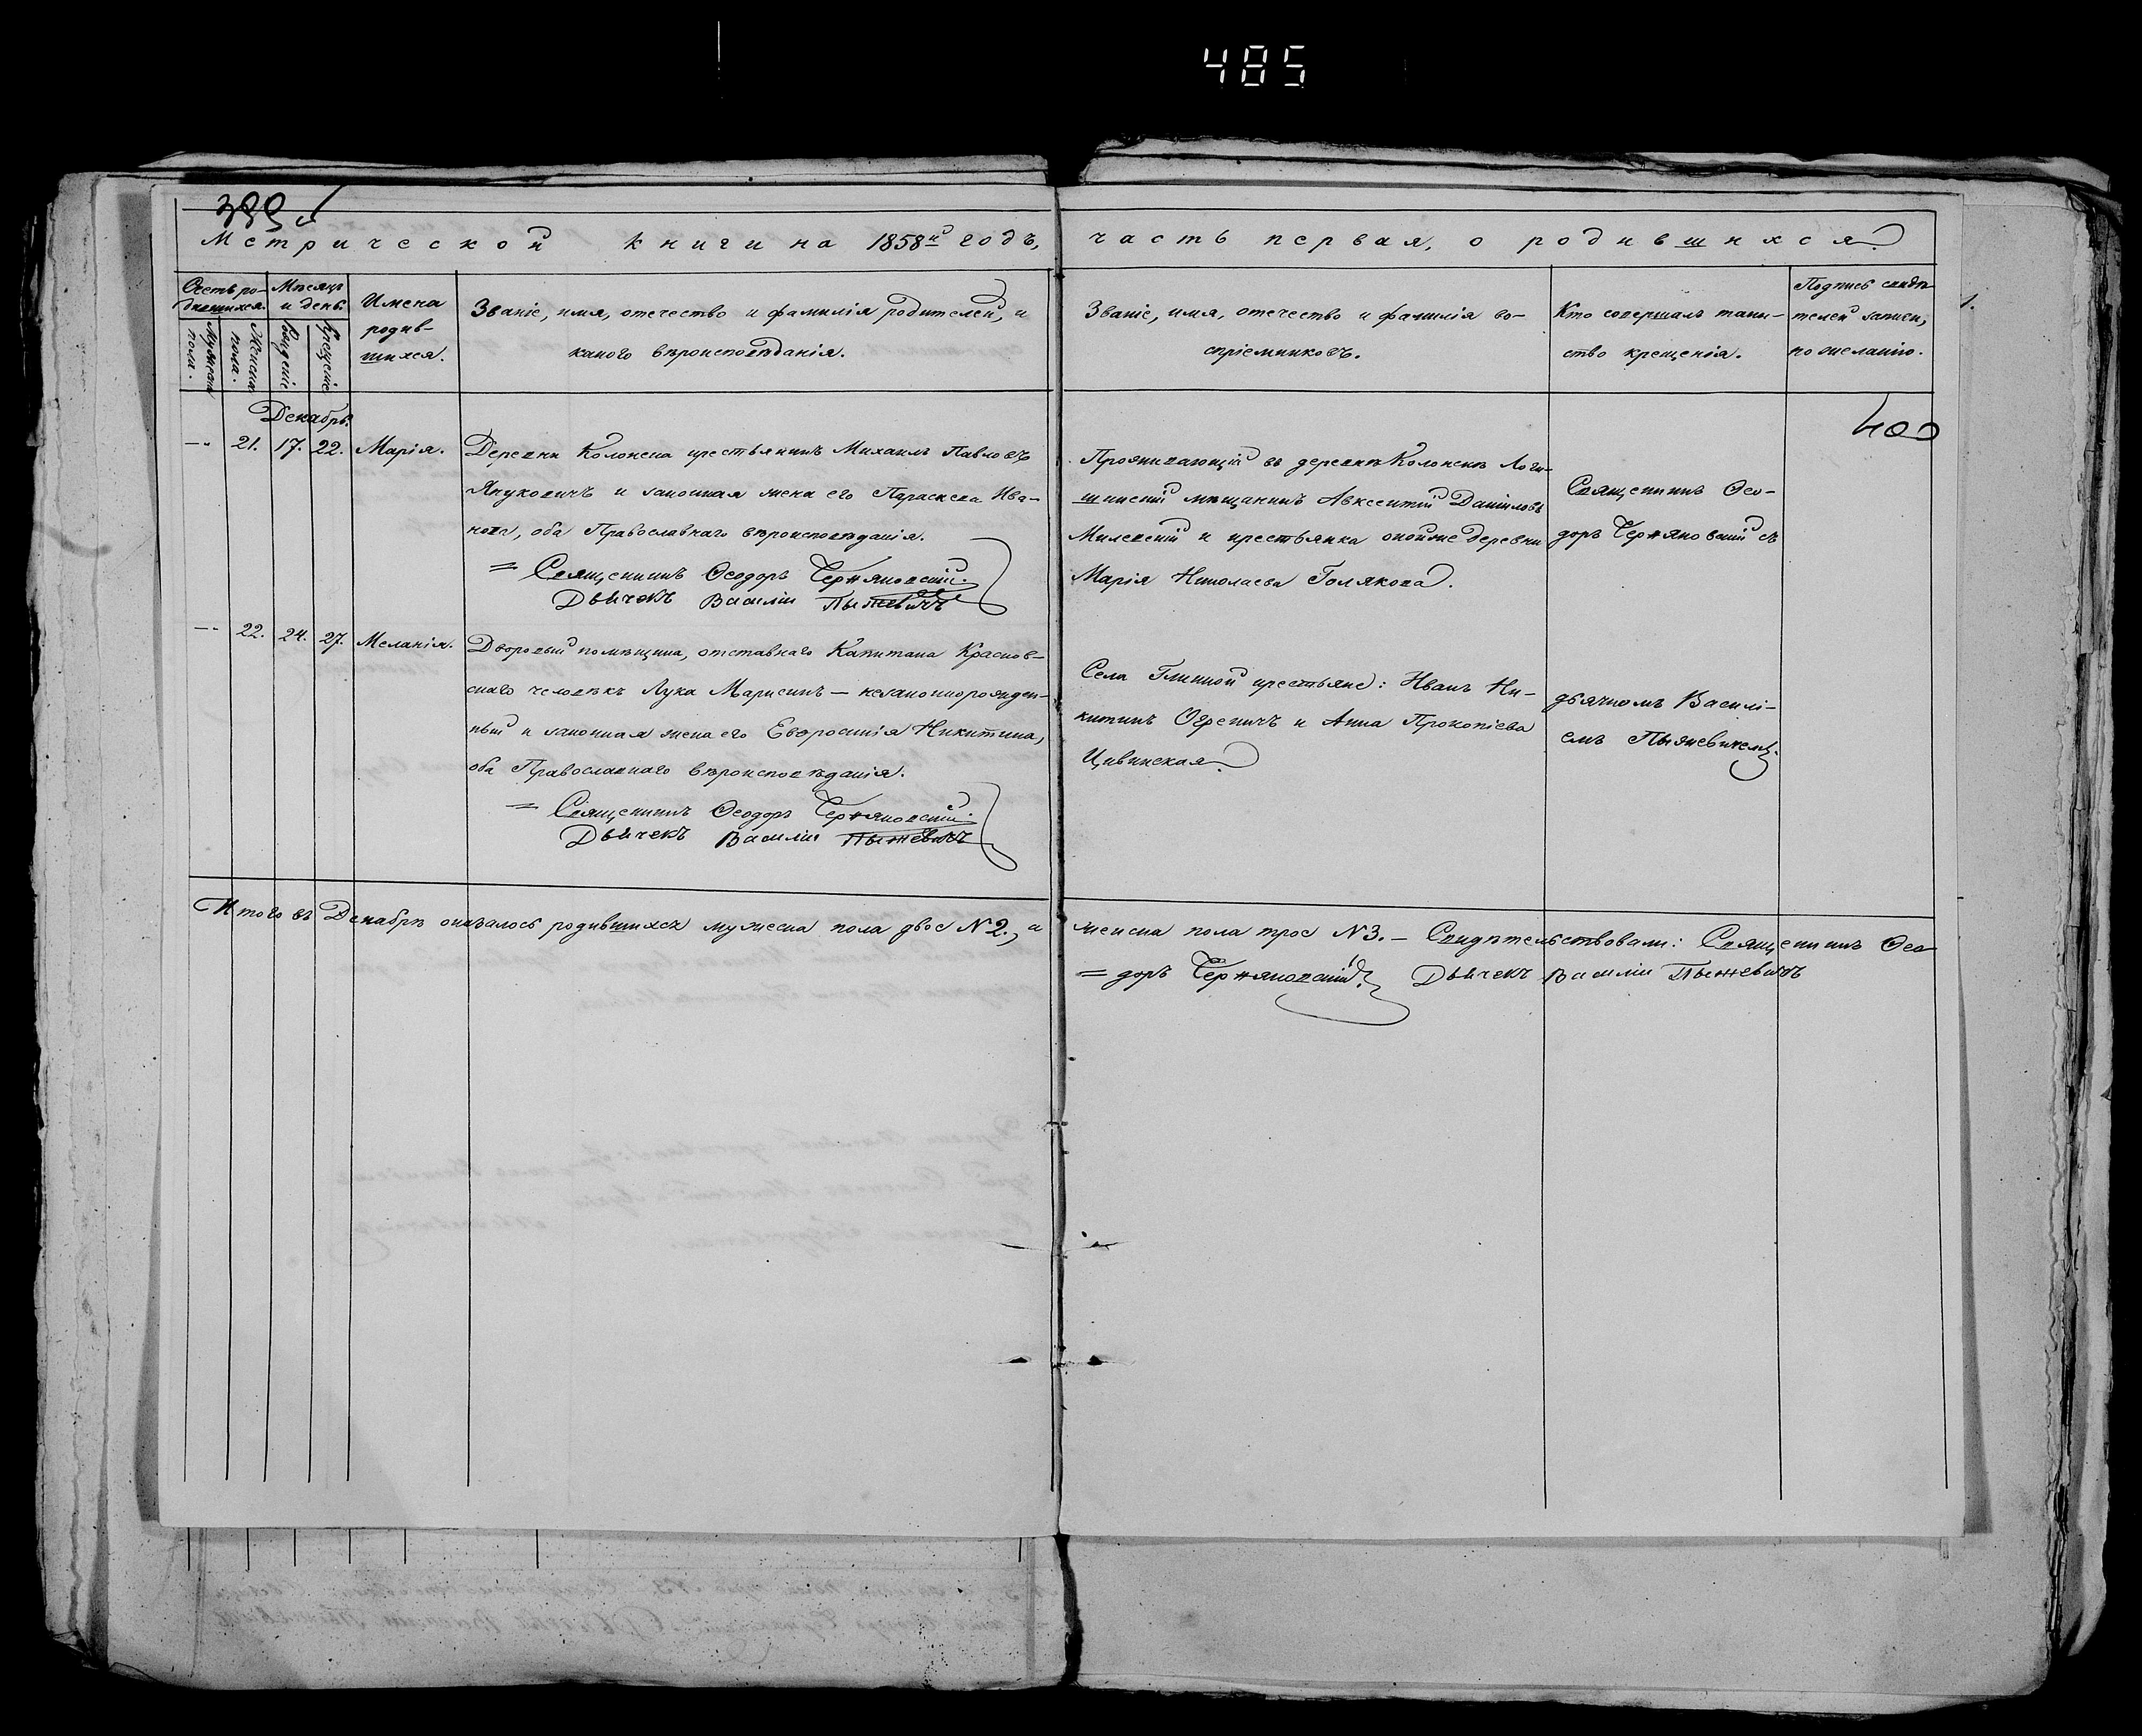 485
399 об
Метрической книги на 1858й годъ, часть первая, о родившихся.
Счетъ ро-
дившихся.
Мѣсяцъ
и день.
Мужеска
пола.
Женска
пола.
Рожденіе
Крещеніе
Имена
родив-
шихся.
Званіе, имя, отечество и фамилія родителей, и
какого вѣроисповѣданія.
Званіе, имя, отечество и фамилія во-
спріемниковъ.
Кто совершалъ таин-
ство крещенія.
Подпись свидѣ-
телей записи,
по желанію.
1.
400
Декабрь.
— 21. 17. 22. Марія.
Деревни Колонска крестьянинъ Михаилъ Павловъ
Януковичъ и законная жена его Параскева Ива-
нова, оба Православнаго вѣроисповѣданія.
= Священникъ Ѳеодоръ Черняковскій.
Дьячекъ Василій Пыжевичъ
Проживающій въ деревнѣ Колонскѣ Логи-
шинскій мѣщанинъ Авксентій Даніиловъ
Милевскій и крестьянка онойже деревни
Марія Николаева Голякова.
Священникъ Ѳео-
доръ Черняковскій съ
— 22. 24. 27. Меланія.
Дворовый помѣщика, отставнаго Капитана Краснов-
скаго человѣкъ Лука Марисинъ — незаконнорожден-
ный и законная жена его Евфросинія Никитина,
оба Православнаго вѣроисповѣданія.
= Священникъ Ѳеодоръ Черняковскій.
Дьячекъ Василій Пыжевичъ
Села Глинной крестьяне: Иванъ Ни-
китинъ Огревичъ и Анна Прокопіева
Цивинская.
дьячкомъ Василі-
емъ Пыжевичемъ.
Итого въ Декабрѣ оказалось родившихся мужеска пола двое №2., а женска пола трое №3. — Свидѣтельствовали: Священникъ Ѳео-
= доръ Черняковскій. Дьячекъ Василій Пыжевичъ